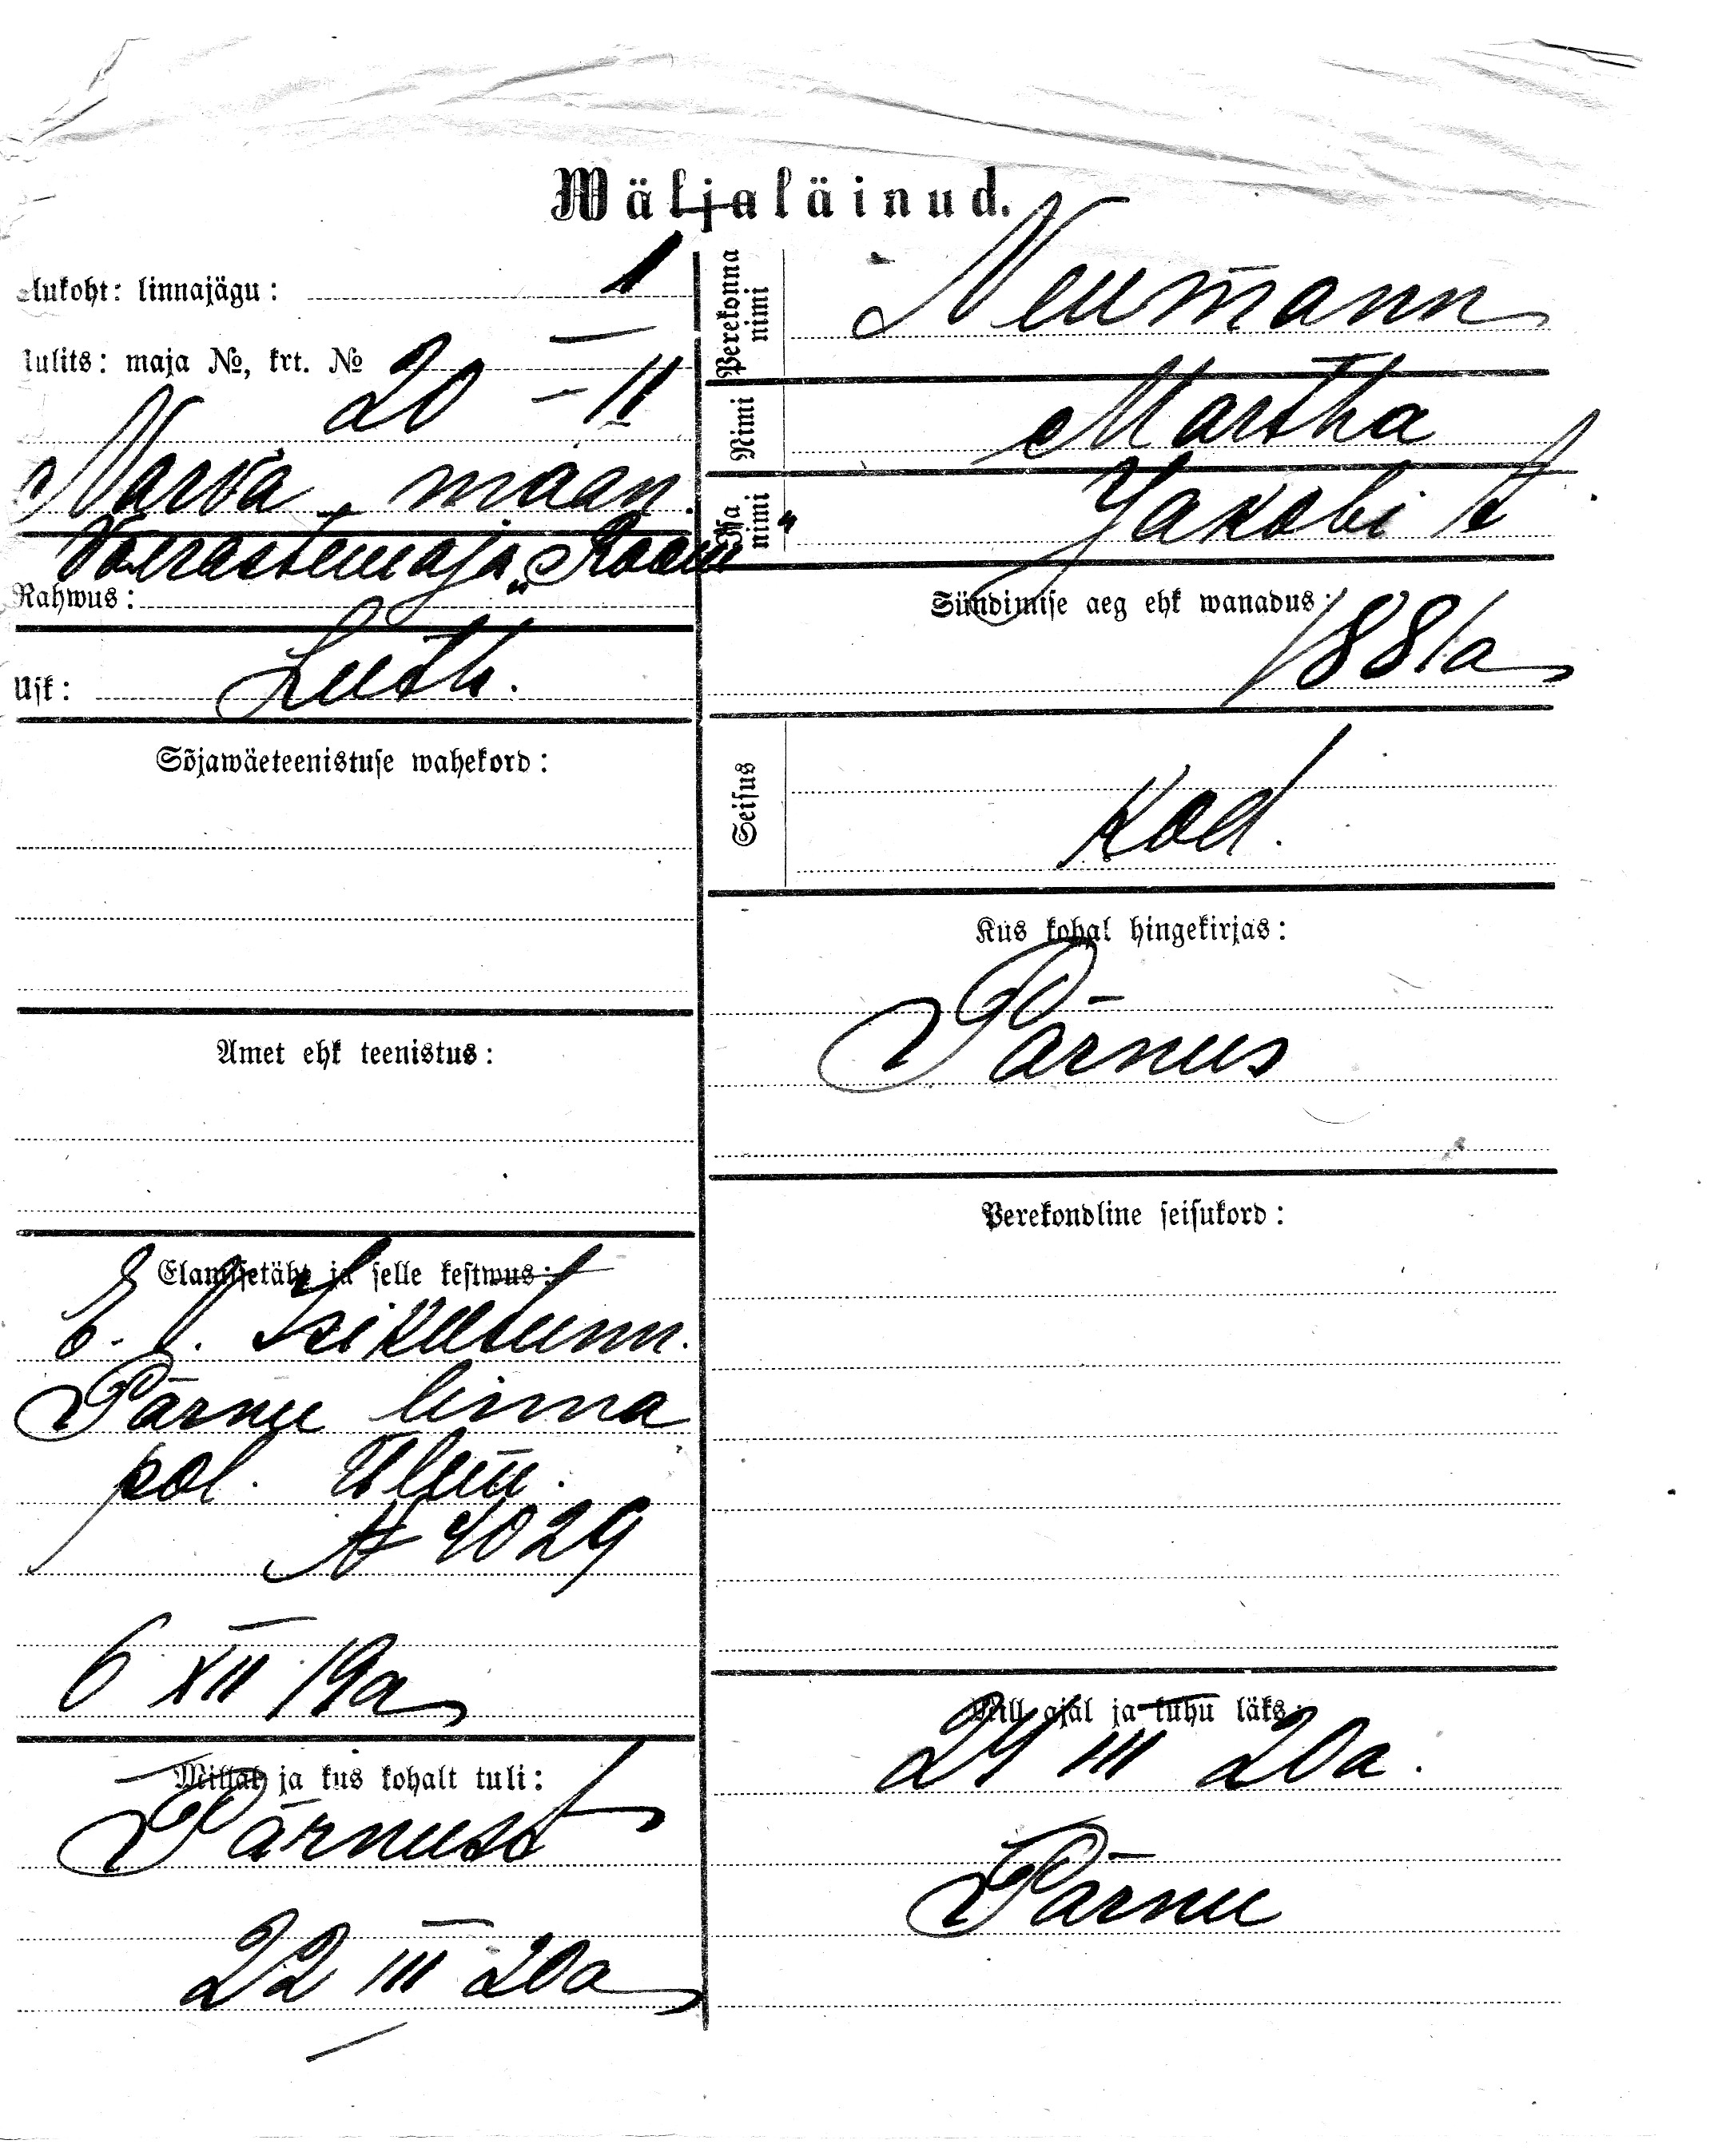 Wäljaläinud.
Elukoht: linnajägu: 1
Uulits: maja №, krt. № 20 – 11
Narva maan.
Võerastemaja „Room“
Rahwus:
Usk: Luth.
Sõjawäeteenistuse wahekord:
Amet ehk teenistus:
Elamisetäht ja selle kestwus:
E. V. Isikutunn.
Pärnu linna
pol. Ülem.
№ 4029
6 XII 19a
Millal ja kus kohalt tuli:
Pärnust
22 III 20a
Perekonna nimi
Neumann
Nimi
Martha
Isa nimi
Jakobi t
Sündimise aeg ehk wanadus:
1881a
Seisus
Kod.
Kus kohal hingekirjas:
Pärnus
Perekondline seisukord:
Mill ajal ja kuhu läks:
24 III 20a.
Pärnu